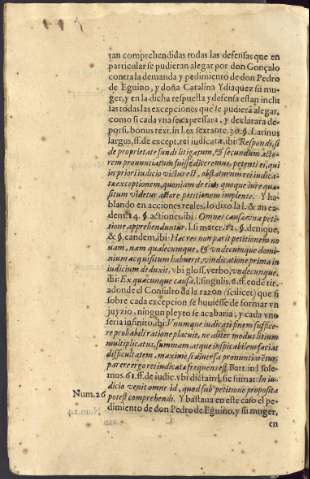 tan comprehendidas todas las defensas que en
particular se pudieran alegar por don Gonçalo
contra la demanda y pedimiento de don Pedro
de Eguino, y doña Catalina Ydiaquez su mu
ger, y en la dicha respuesta y defensa estan inclu
sas todas las excepciones que le pudiera alegar,
como si cada vna se expressara, y declarara de
por si. bonus text. in l. ex sextante. 30. §. Latinus
largus, ff. de except. rei iudicatæ, ibi: Respondi, si
de proprietate fundi litigatum, & secundum acto-
rem pronuntiatum fuisse diceremus, petenti ei, qui
in priori iudicio victus est, obstaturam rei iudica-
tæ exceptionem, quoniam de eius quoque iure quæ-
situm videtur actore petitionem implente. Y ha
blando en acciones reales, lo dixo la l. & an ea-
dem. 14. §. actiones, ibi: Omnes causæ vna petitio
ne apprehenduntur. l. si mater. 11. §. denique,
& §. eandem, ibi: Hac res non parit petitionem no
uam, nam qualecunque, & vndecunque domi-
nium acquisitum habuerit, vindicatione prima in
iudicium deduxit, vbi gloss. verbo, vndecunque,
ibi: Ex quacunque causa. l. singulis. 6. ff. eod. tit.
adonde el Consulto da la razon (scilicet) que si
sobre cada excepcion se huuiesse de formar vn
juyzio, ningun pleyto se acabaria, y cada vno
seria infinito, ibi: Vnumque iudicati finem suffice-
re probabili ratione placuit, ne aliter modus litium
multiplicatus, summam atque inexplicabilem faciat
difficultatem, maxime si diuersa pronuntiarentur,
parere ergo rei iudicatæ frequens est. Bart. in l. sole-
mus. 61. ff. de iudic. vbi dictam, sic firmat: In iu-
dicio venit omne id, quod sub petitione proposita
Num. 26 potest comprehendi. Y bastaua en este caso el pe-
dimiento de don Pedro de Eguino, y su muger,
en